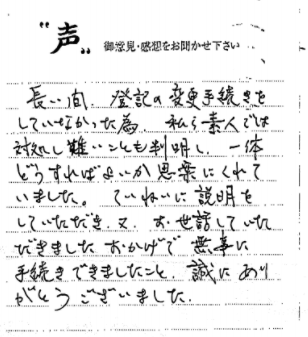 "声" 御意見・感想をお聞かせ下さい
長い間、登記の変更手続きを
していなかった為、私ら素人では
対処し難いことも判明し、一体
どうすればよいか思案にくれて
いました。ていねいに説明を
していただき又、お世話していた
だきました おかげで無事に
手続きできましたこと、誠にあり
がとうございました.